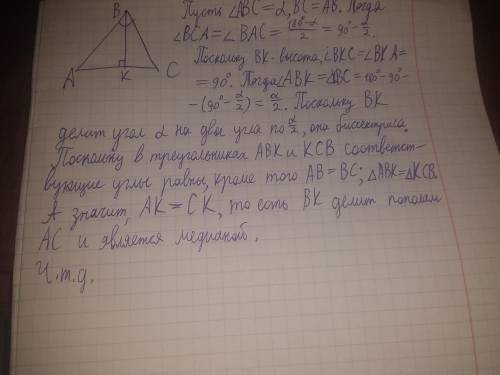 B
A
K
C
Пусть ∠ABC = α, BC = AB. Тогда
∠BCA = ∠BAC = (180°-α)/2 = 90° - α/2.
Поскольку BK - высота, ∠BKC = ∠BKA =
= 90°. Тогда ∠ABK = ∠KBC = 180° - 90° -
- (90° - α/2) = α/2. Поскольку BK
делит угол α на два угла по α/2, она биссектриса.
Поскольку в треугольниках ABK и KCB соответст-
вующие углы равны, кроме того AB = BC; △ABK = △KCB.
А значит, AK = CK, то есть BK делит пополам
AC и является медианой.
Ч.т.д.